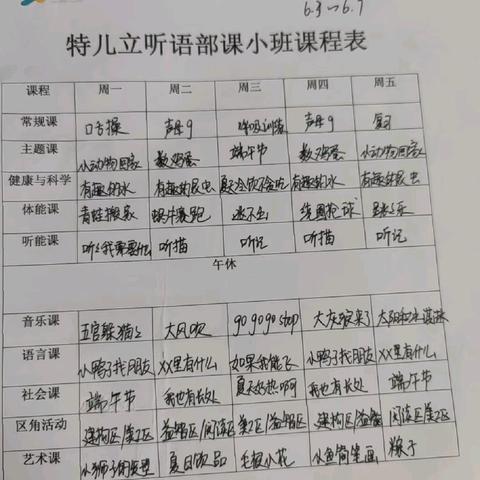 6.3～6.7
特儿立听语部课小班课程表
课程 周一 周二 周三 周四 周五
常规课 口舌操 声母q 呼吸训练 声母q 复习
主题课 小动物回家 数鸡蛋 端午节 数鸡蛋 小动物回家
健康与科学 有趣的水 有趣的昆虫 夏天冷饮不贪吃 有趣的水 有趣的昆虫
体能课 青蛙搬家 蜗牛赛跑 抢球
听能课 听描 听记 听描 听记
午休
音乐课 五官躲猫猫 大风吹 go go go stop 大灰狼来了
语言课 小鸭子找朋友 XX里有什么 如果我能飞 小鸭子找朋友 XX里有什么
社会课 端午节 我也有长处 夏天好热啊 我也有长处 端午节
区角活动 建构区/美工区 益智区/阅读区 美工区/益智区 建构区/益智 阅读区/美工区
艺术课 夏日饮品 毛根小花 小鱼简笔画 粽子